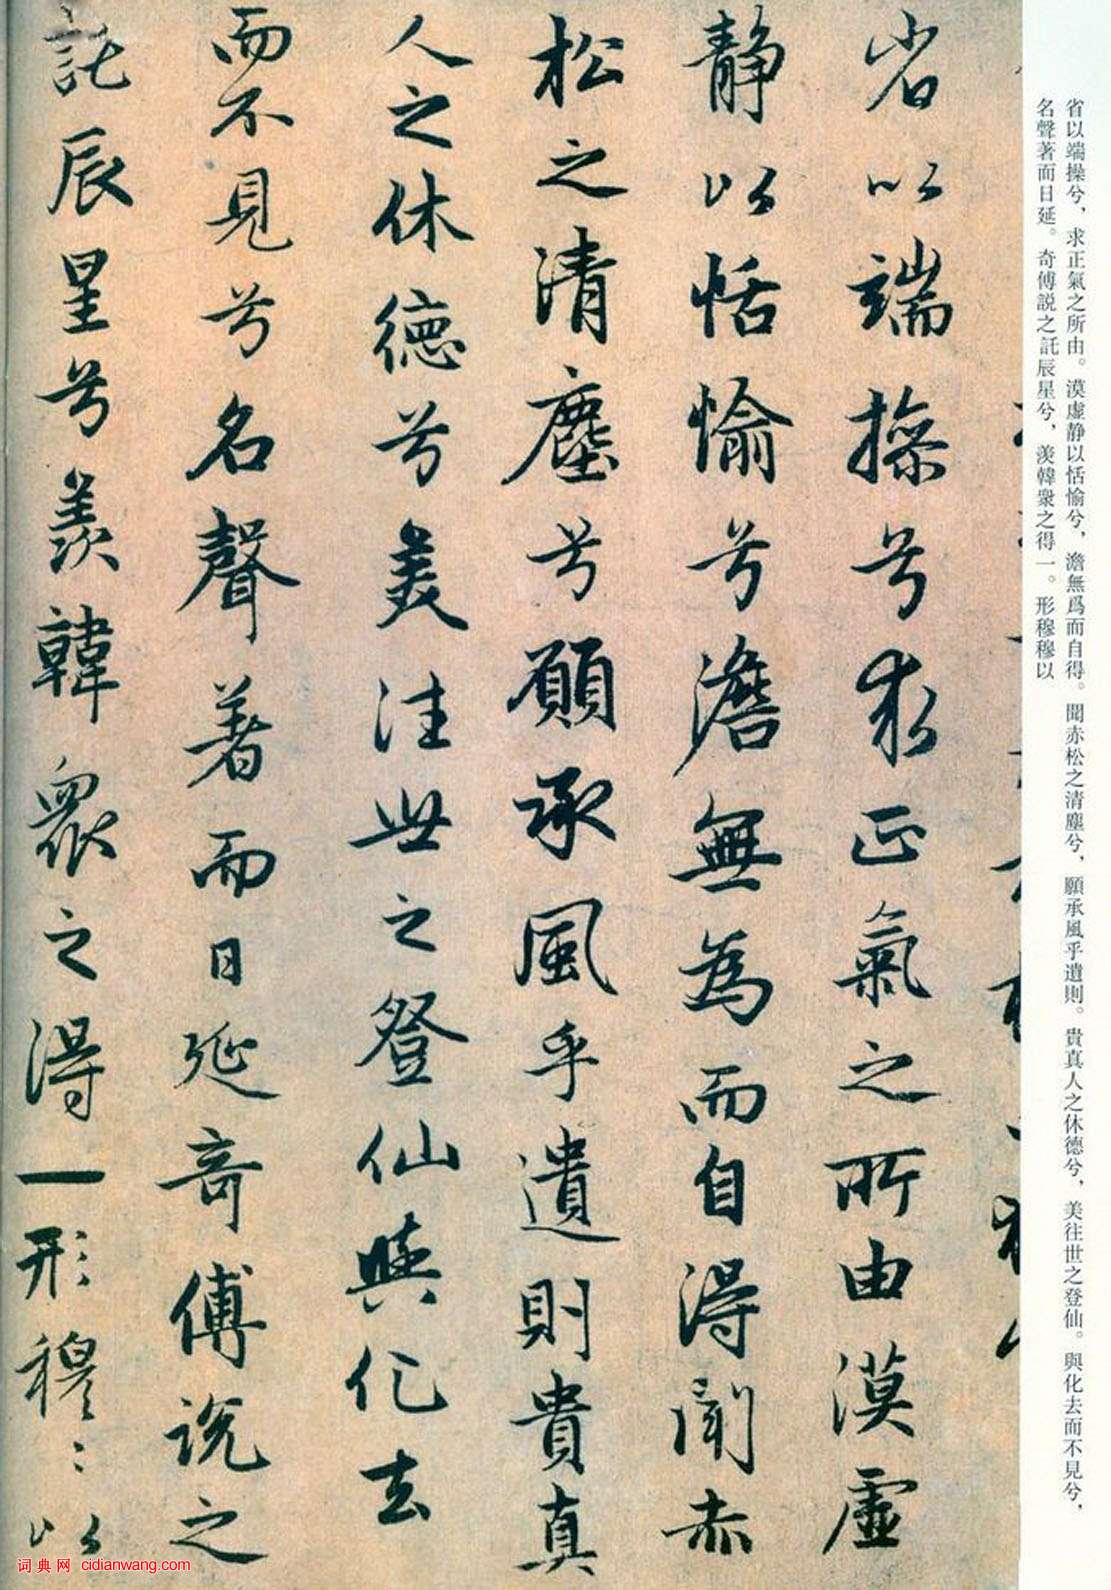 省以端操兮，求正氣之所由。漠虛静以恬愉兮，澹無爲而自得。聞赤松之清塵兮，願承風乎遺則。貴真人之休德兮，美往世之登仙。與化去而不見兮，
名聲著而日延。奇傅説之託辰星兮，羨韓衆之得一。形穆穆以
省以端操兮求正氣之所由漠虛
静以恬愉兮澹無為而自得聞赤
松之清塵兮願承風乎遺則貴真
人之休德兮美往世之登仙與化去
而不見兮名聲著而日延奇傅説之
託辰星兮羨韓衆之得一形穆〻以
词典网 cidianwang.com